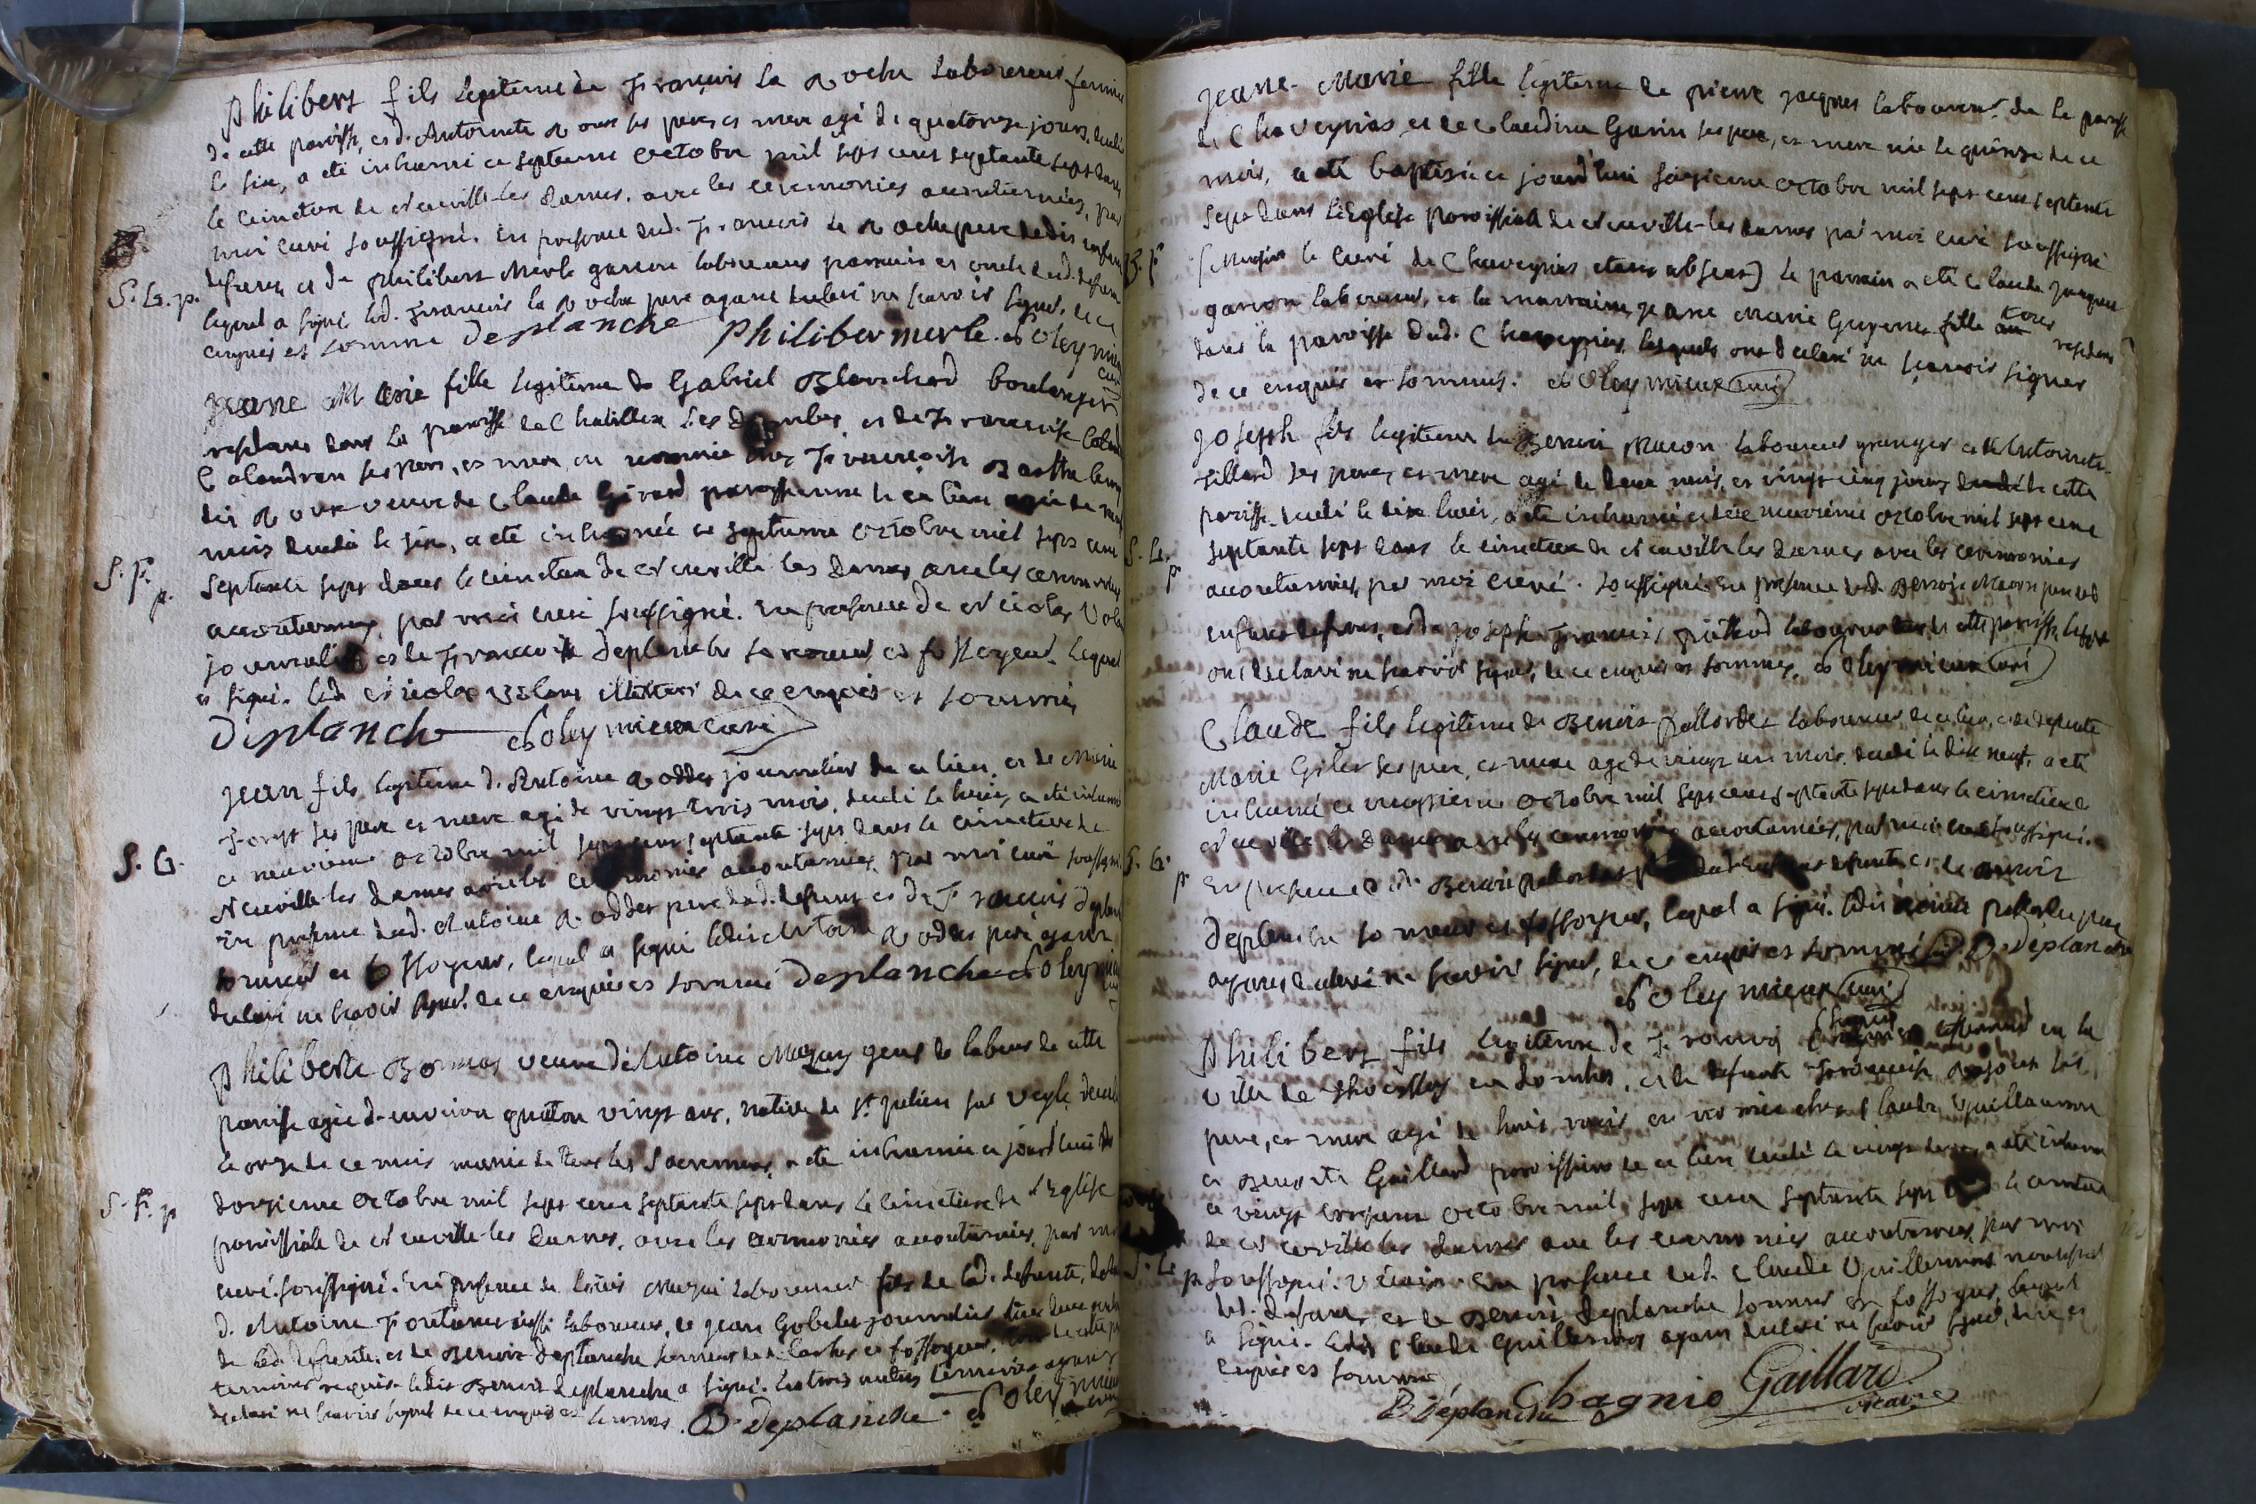 Philibert fils legitime de François la Roche laboureur fermier
de cette paroisse, et d. Antoinette Roux ses pere et mere agé de quatorze jours, decedé
le six, a eté inhumé ce septieme octobre mil sept cent septante sept dans
le cimetiere de Neuville-les Dames, avec les ceremonies accoutumées, par
moi curé soussigné. en presence dud. François la Roche pere dudit enfant
defunt, et de Philibert Merle garcon laboureur parrain et oncle dud. defunt
S. G. p.
lequel a signé led. François la Roche pere ayant declaré ne scavoir signer, de ce
enquis et sommé Deplanche Philiber merle. Soleymieux
curé
Jeane Marie fille legitime de Gabriel Blanchard boulanger
residant dans la paroisse de Chatillon les Dombes, et de Françoise
Calandron ses pere, et mere, en nourrice chez Françoise
dit Roux veuve de Claude Girard paroissienne de ce lieu agée de
mois decedée le six, a eté inhumée ce septieme octobre mil sept cent
S. F. p.
septante sept dans le cimetiere de Neuville les Dames avec les ceremonies
accoutumées, par moi curé soussigné. en presence de Nicolas
journalier et de François Deplanche sonneur et fossoyeur. lequel
a signé. led. Nicolas illiteré de ce enquis et sommé
Deplanche Soleymieux curé
Jean fils legitime d. Antoine Rodder journalier de ce lieu, et de Marie
Forest ses pere et mere agé de vingt trois mois, decedé le huit, a eté inhumé
ce neuvieme octobre mil sept cent septante sept dans le cimetiere de
S. G.
Neuville-les Dames avec les ceremonies accoutumées, par moi curé soussigné
en presence dud. Antoine Rodder pere dud. defunt et de François Deplanche
sonneur et fossoyeur, lequel a signé ledit Antoine Rodder pere ayant
declaré ne scavoir signer, de ce enquis et sommé Deplanche Soleymieux
Philiberte veuve d'Antoine gens de labeur de cette
paroisse agée d'environ quatre vingt ans, native de St. Julien sur Veyle, decedée
le onze de ce mois munie de tous les Sacremens, a eté inhumée ce jourd'hui
S. F. p
douzieme octobre mil sept cent septante sept dans le cimetiere de l'Eglise
paroissiale de Neuville-les Dames, avec les ceremonies accoutumées, par moi
curé soussigné. en presence de Louis laboureur fils de lad. defunte,
d. Antoine aussi laboureur, de Jean Gobelet journalier
de lad. defunte, et de Benoit Deplanche sonneur de cloches et fossoyeur,
temoins requis ledit Benoit Deplanche a signé. les trois autres temoins ayant
declaré ne scavoir signer de ce enquis et sommés. B. Deplanche Soleymieux
curé
Jeane-Marie fille legitime de pierre Jacques laboureur de la paroisse
de Chaveyrias et de Claudine Garin ses pere, et mere née le quinze de ce
mois, a eté baptisée ce jourd'hui seizieme octobre mil sept cent septante
sept dans l'Eglise paroissiale de Neuville-les Dames par moi curé soussigné
B. F
(Monsieur le curé de Chaveyrias etant absent) le parrain a eté Claude Jacques
garcon laboureur, et la marraine Jeane Marie Guyenne fille
dans la paroisse dud. Chaveyrias, lesquels ont declaré ne scavoir signer
de ce enquis et sommés. Soleymieux curé
Joseph fils legitime de Benoit Macon laboureur granger et d'Antoinette
ses pere, et mere agé de deux mois, et vingt cinq jours de cette
paroisse decedé le dix huit, a eté inhumé ce dix neuvieme octobre mil sept cent
S. G. p
septante sept dans le cimetiere de Neuville les Dames avec les ceremonies
accoutumées, par moi curé soussigné en presence dud. Benoit Macon pere dud
enfant defunt, et de Joseph François laboureur de cette paroisse, lesquels
ont declaré ne scavoir signer, de ce enquis et sommés, Soleymieux curé
Claude fils legitime de Benoit laboureur de ce lieu, et de defunte
Marie Gilet ses pere, et mere agé de vingt un mois, decedé le dix neuf, a eté
inhumé ce vingtieme octobre mil sept cent septante sept dans le cimetiere de
Neuville les Dames avec les ceremonies accoutumées, par moi curé soussigné.
S. G. p
en presence dud. Benoit dud. enfant defunt, et de Benoit
Deplanche sonneur et fossoyeur, lequel a signé. ledit Benoit pere
ayant declaré ne scavoir signer, de ce enquis et sommé B. Deplanche
Soleymieux curé
Philibert fils legitime de François en la
ville de Thoissey en Dombes, et de defunte Françoise ses
pere, et mere agé de huit mois en nourrice chez Claude Guillaumon
et Benoite Gaillard paroissiens de ce lieu decedé le vingt deux, a eté inhumé
ce vingt troisieme octobre mil sept cent septante sept le cimetiere
de Neuville les Dames avec les ceremonies accoutumées, par moi
S. G. p
soussigné. vicaire. en presence dud. Claude Guillaumon nourricier
dud. defunt, et de Benoit Deplanche sonneur et fossoyeur, lequel
a signé. ledit Claude Guillaumon ayant declaré ne scavoir signer, de ce
enquis et sommé
B. Deplanche Chagnio Gaillard
vicaire